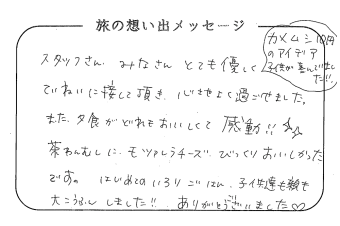 旅の想い出メッセージ
カメムシ10円
のアイデア
子供が喜んでいまし
た!!
スタッフさん みなさん とても優しく
ていねいに接して頂き、心きせよく過ごせました。
また、夕食がどれもおいしくて 感動!!☆☆
茶わんむしに、モッツァレラチーズ、びっくりおいしかった
です。 はじめてのいろりごはん、子供達も親も
大こうふんしました!! ありがとうございました♡